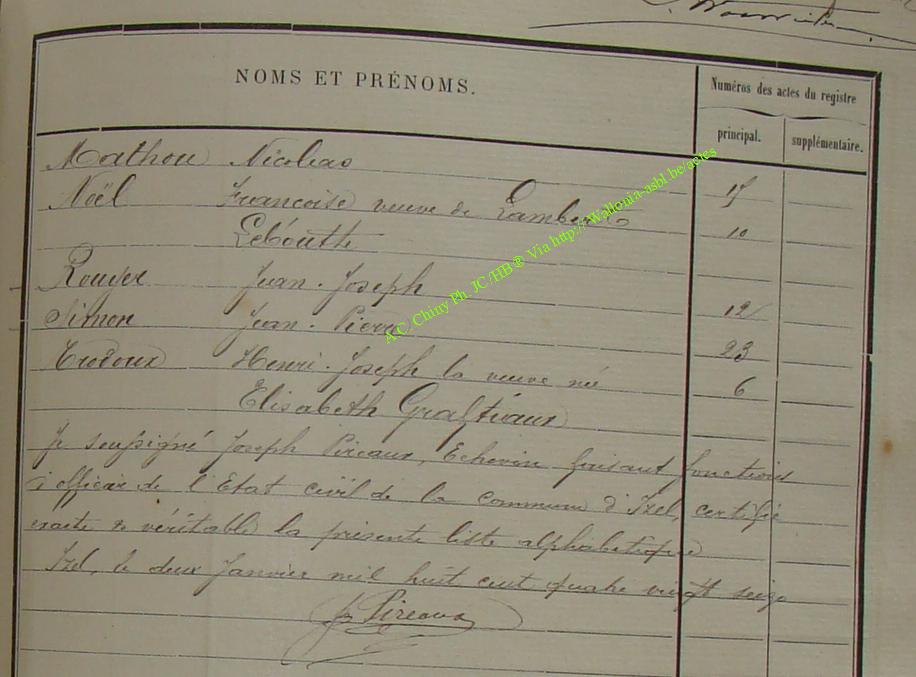 NOMS ET PRÉNOMS.
Numéros des actes du registre
principal.
supplémentaire.
Mathou Nicolas 15
Noël Françoise veuve de Lambert 10
Lebouthe
Rouyer Jean-Joseph 12
Simon Jean-Pierre 23
Trodoux Henri-Joseph la veuve née 6
Elisabeth Graftiaux
Je soussigné Joseph Pireaux, Echevin faisant fonctions
d'officier de l'Etat civil de la commune d'Izel, certifie
exacte & véritable la présente liste alphabétique
Izel, le deux Janvier mil huit cent quatre vingt seize
J. Pireaux
A.C. Chiny Ph. JC/HB® Via http://Wallonia-asbl.be/actes